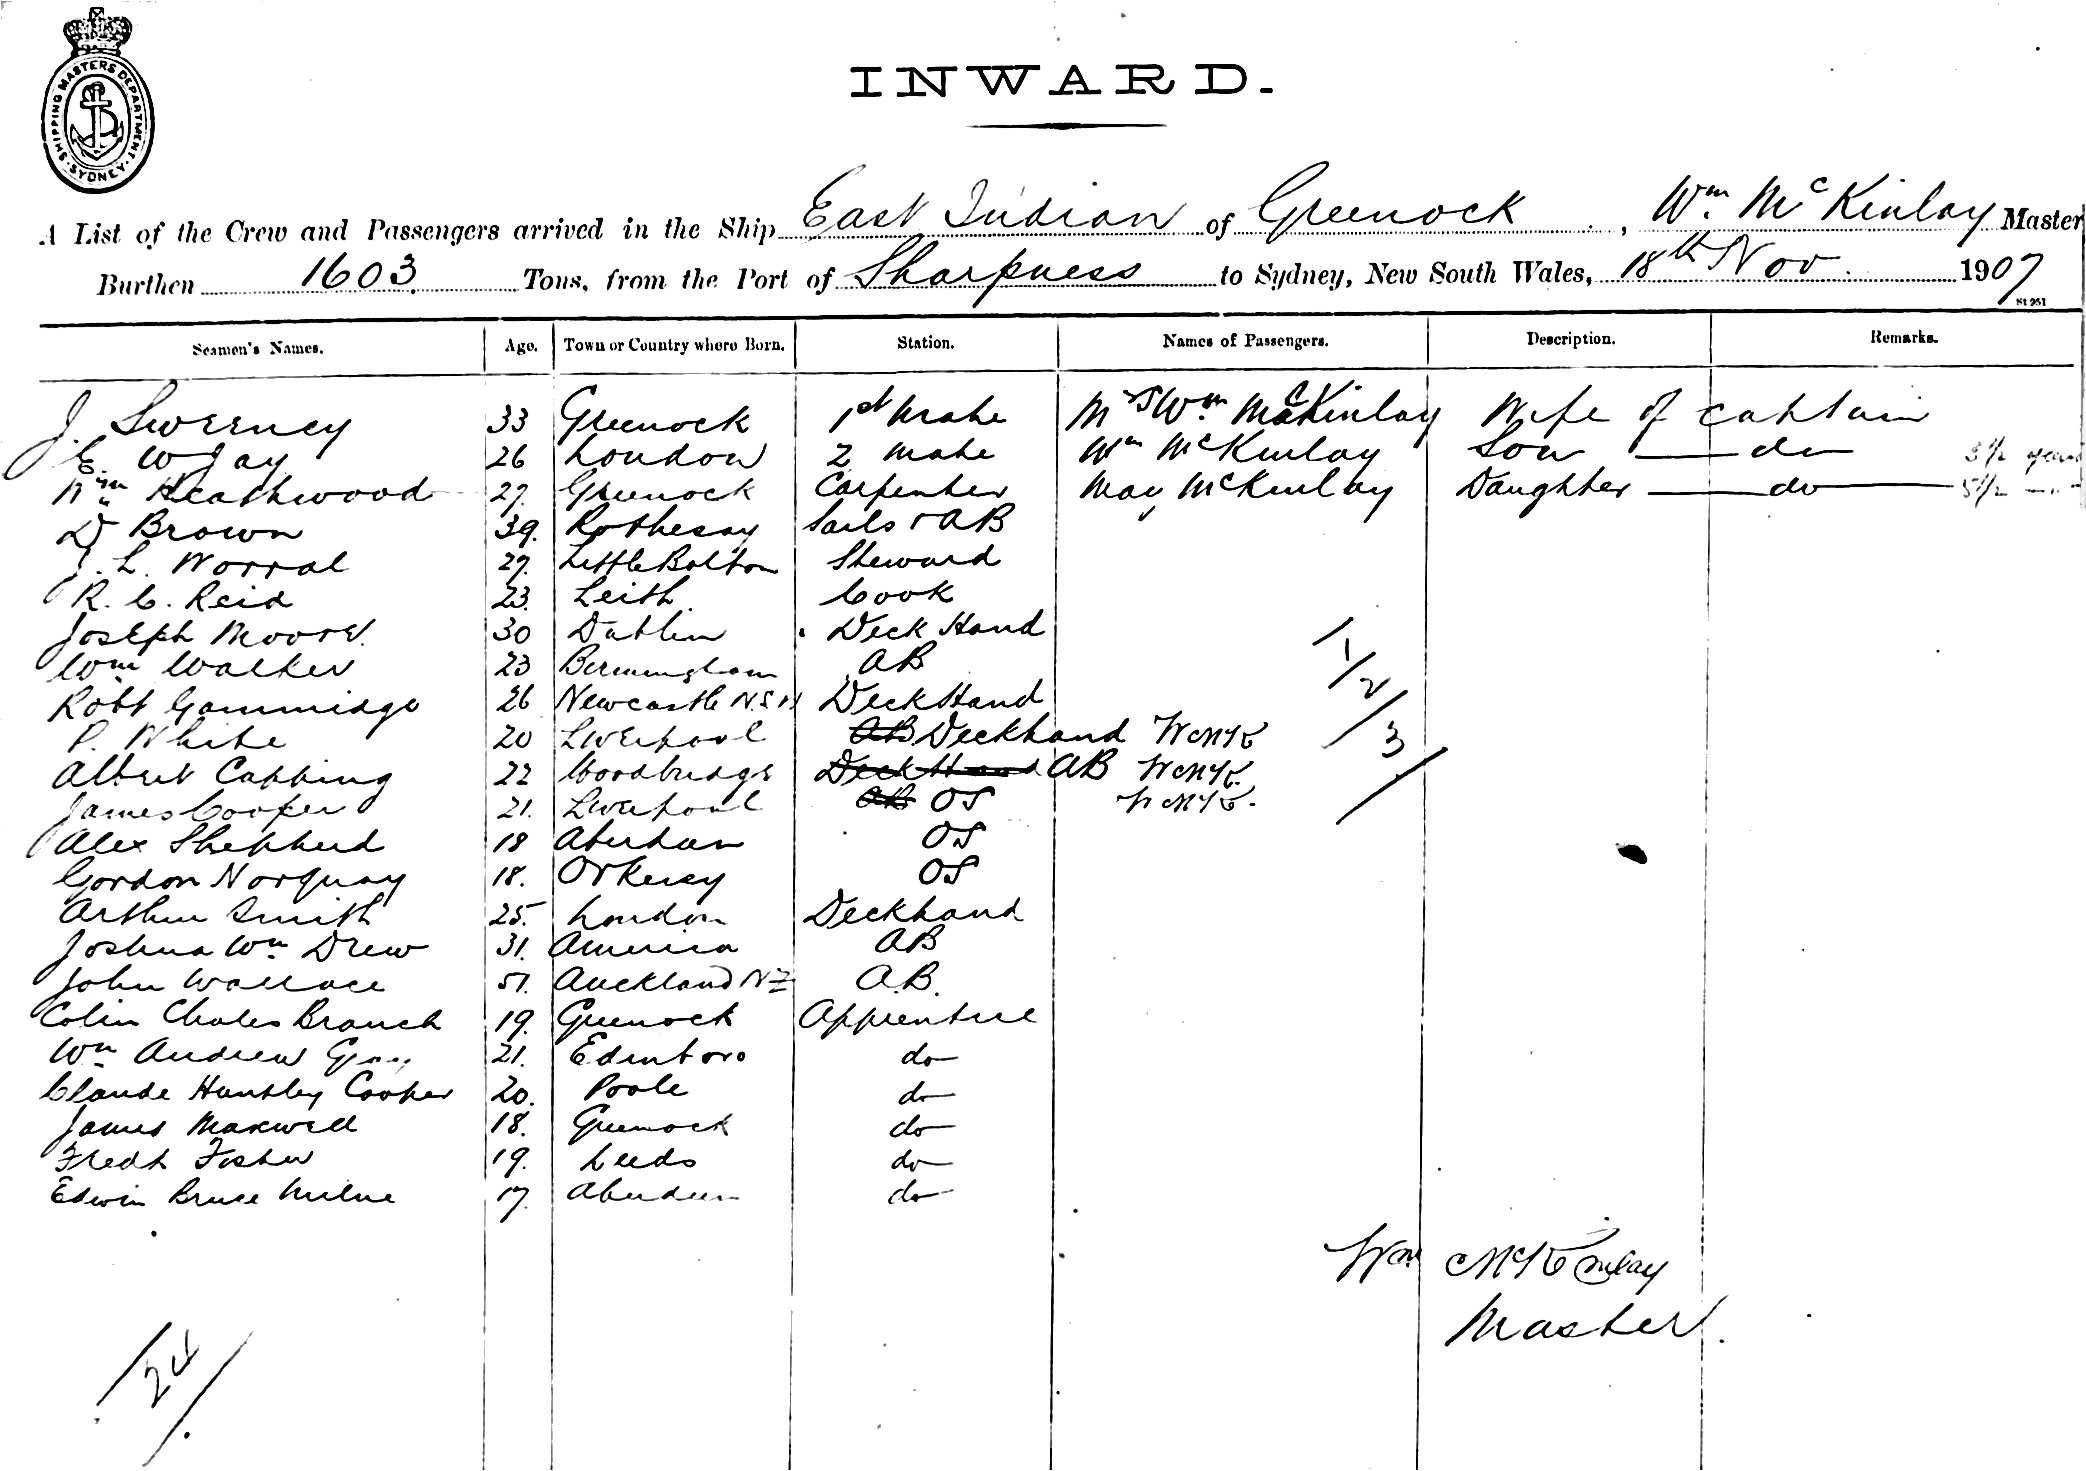 SHIPPING MASTERS DEPARTMENT · SYDNEY ·
INWARD.
A List of the Crew and Passengers arrived in the Ship East Indian of Greenock, Wm McKinlay Master
Burthen 1603 Tons, from the Port of Sharpness to Sydney, New South Wales, 18th Nov. 1907
St 251
Seamen's Names. Age. Town or Country where Born. Station. Names of Passengers. Description. Remarks.
J. Sweeney 33 Greenock 1st Mate Mrs Wm McKinlay Wife of Captain
E W Jay 26 London 2 Mate Wm McKinlay Son do 3 1/2 years
Wm Heathwood 27. Greenock Carpenter May McKinlay Daughter do 5 1/2
D Brown 39. Rothesay Sails & AB
J. L. Worral 27. Little Bolton Steward
R. C. Reid 23. Leith Cook
Joseph Moore. 30 Dublin Deck Hand
Wm Walker 23 Birmingham AB
Robt Gammidge 26 Newcastle N.S.W Deck Hand
P. White 20 Liverpool AB Deckhand WMcK
Albert Capping 22 Woodbridge Deck Hand AB WMcK.
James Cooper 21. Liverpool AB OS WMcK.
Alex Shepherd 18 Aberdeen OS
Gordon Norquay 18. Orkney OS
Arthur Smith 25. London Deckhand
Joshua Wm Drew 31. America AB
John Wallace 51. Auckland NZ A.B.
Colin Charles Branch 19. Greenock Apprentice
Wm Andrew Gray 21. Edinboro do
Claude Huntley Cooper 20. Poole do
James Maxwell 18. Greenock do
Fredk Fisher 19. Leeds do
Edwin Bruce Milne 17. Aberdeen do
1/2/3/
Wm McKinlay
Master.
/24/